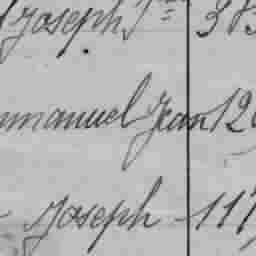 Joseph Jne 383
mmanuel Jean 120
Joseph 117